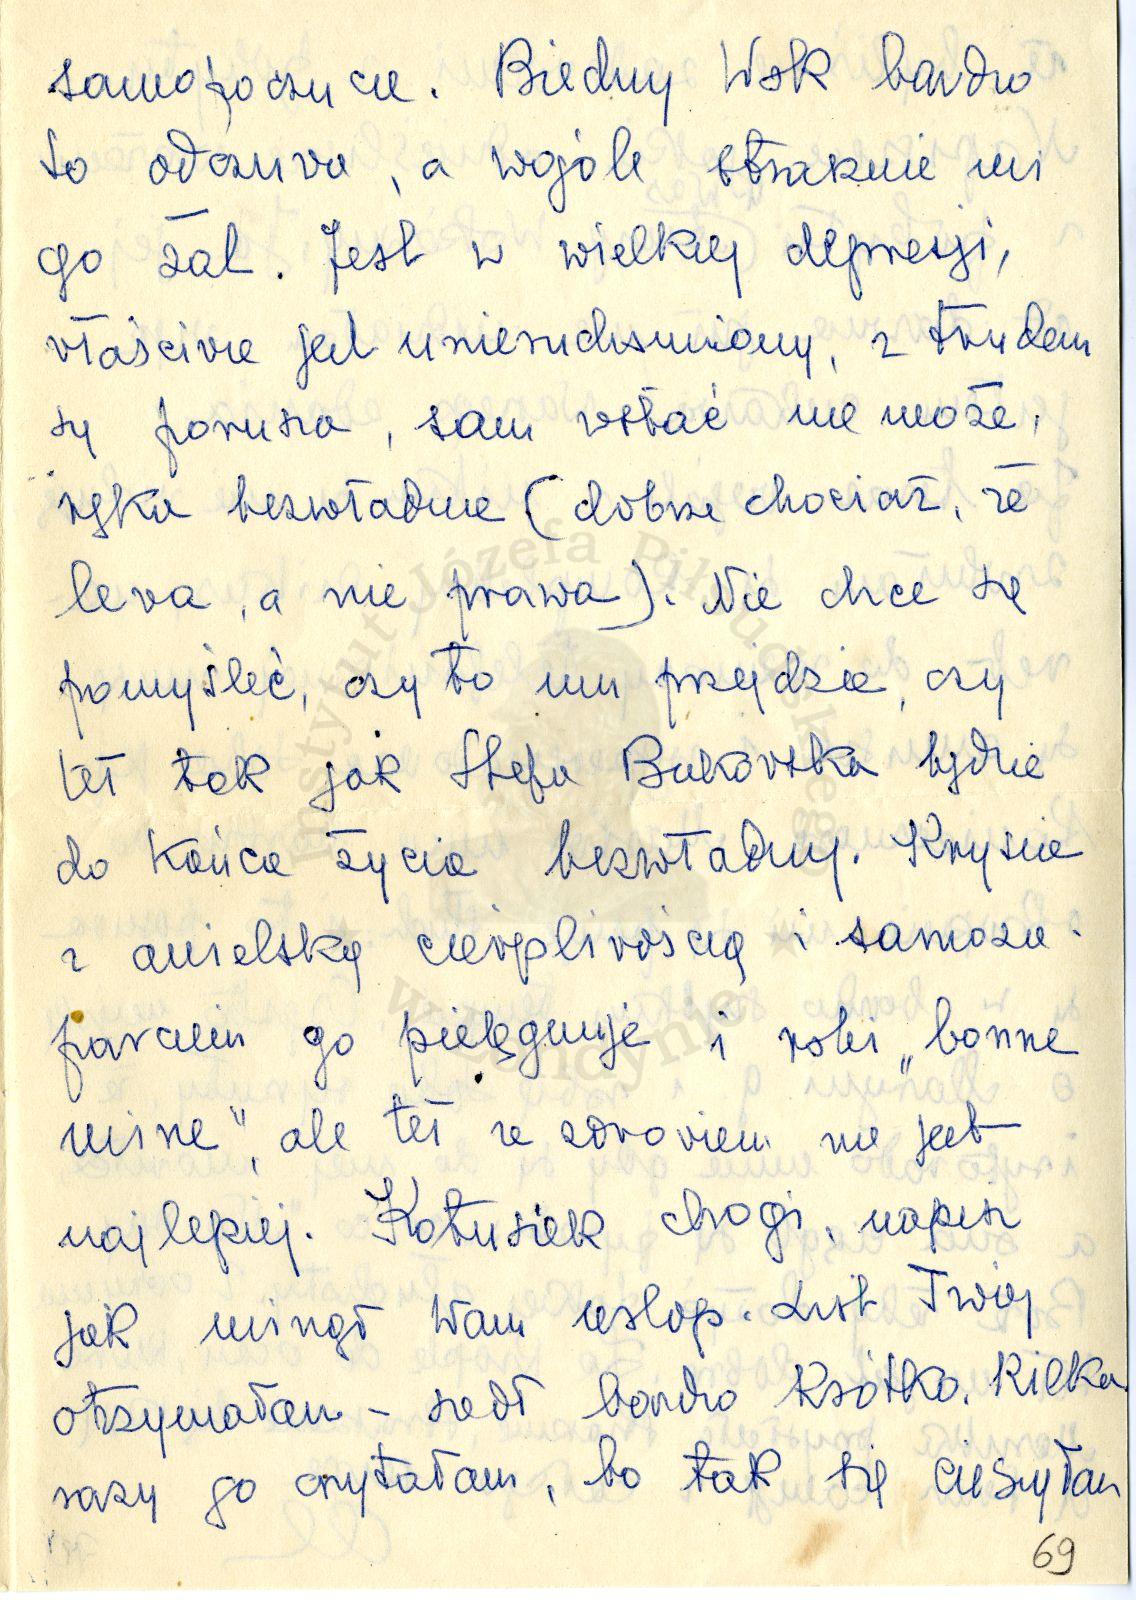 samopoczucie. Biedny Wsk bardzo
to odczuwa, a wogóle strasznie mi
go żal. Jest w wielkiej depresji,
właściwie jest unieruchomiony, z trudem
się porusza, sam wstać nie może,
ręka bezwładna (dobrze chociaż, że
lewa, a nie prawa). Nie chce się
pomyśleć, czy to mu przejdzie, czy
też tak jak Stefa Bukowska będzie
do końca życia bezwładny. Krysia
z anielską cierpliwością i samoza-
parciem go pielęgnuje i robi „bonne
mine", ale też ze zdrowiem nie jest
najlepiej. Kotusiek drogi, napisz
jak minął Wam urlop. List Twój
otrzymałam – szedł bardzo krótko. Kilka
razy go czytałam, bo tak się cieszyłam
69
Instytut Józefa Piłsudskiego
w Londynie